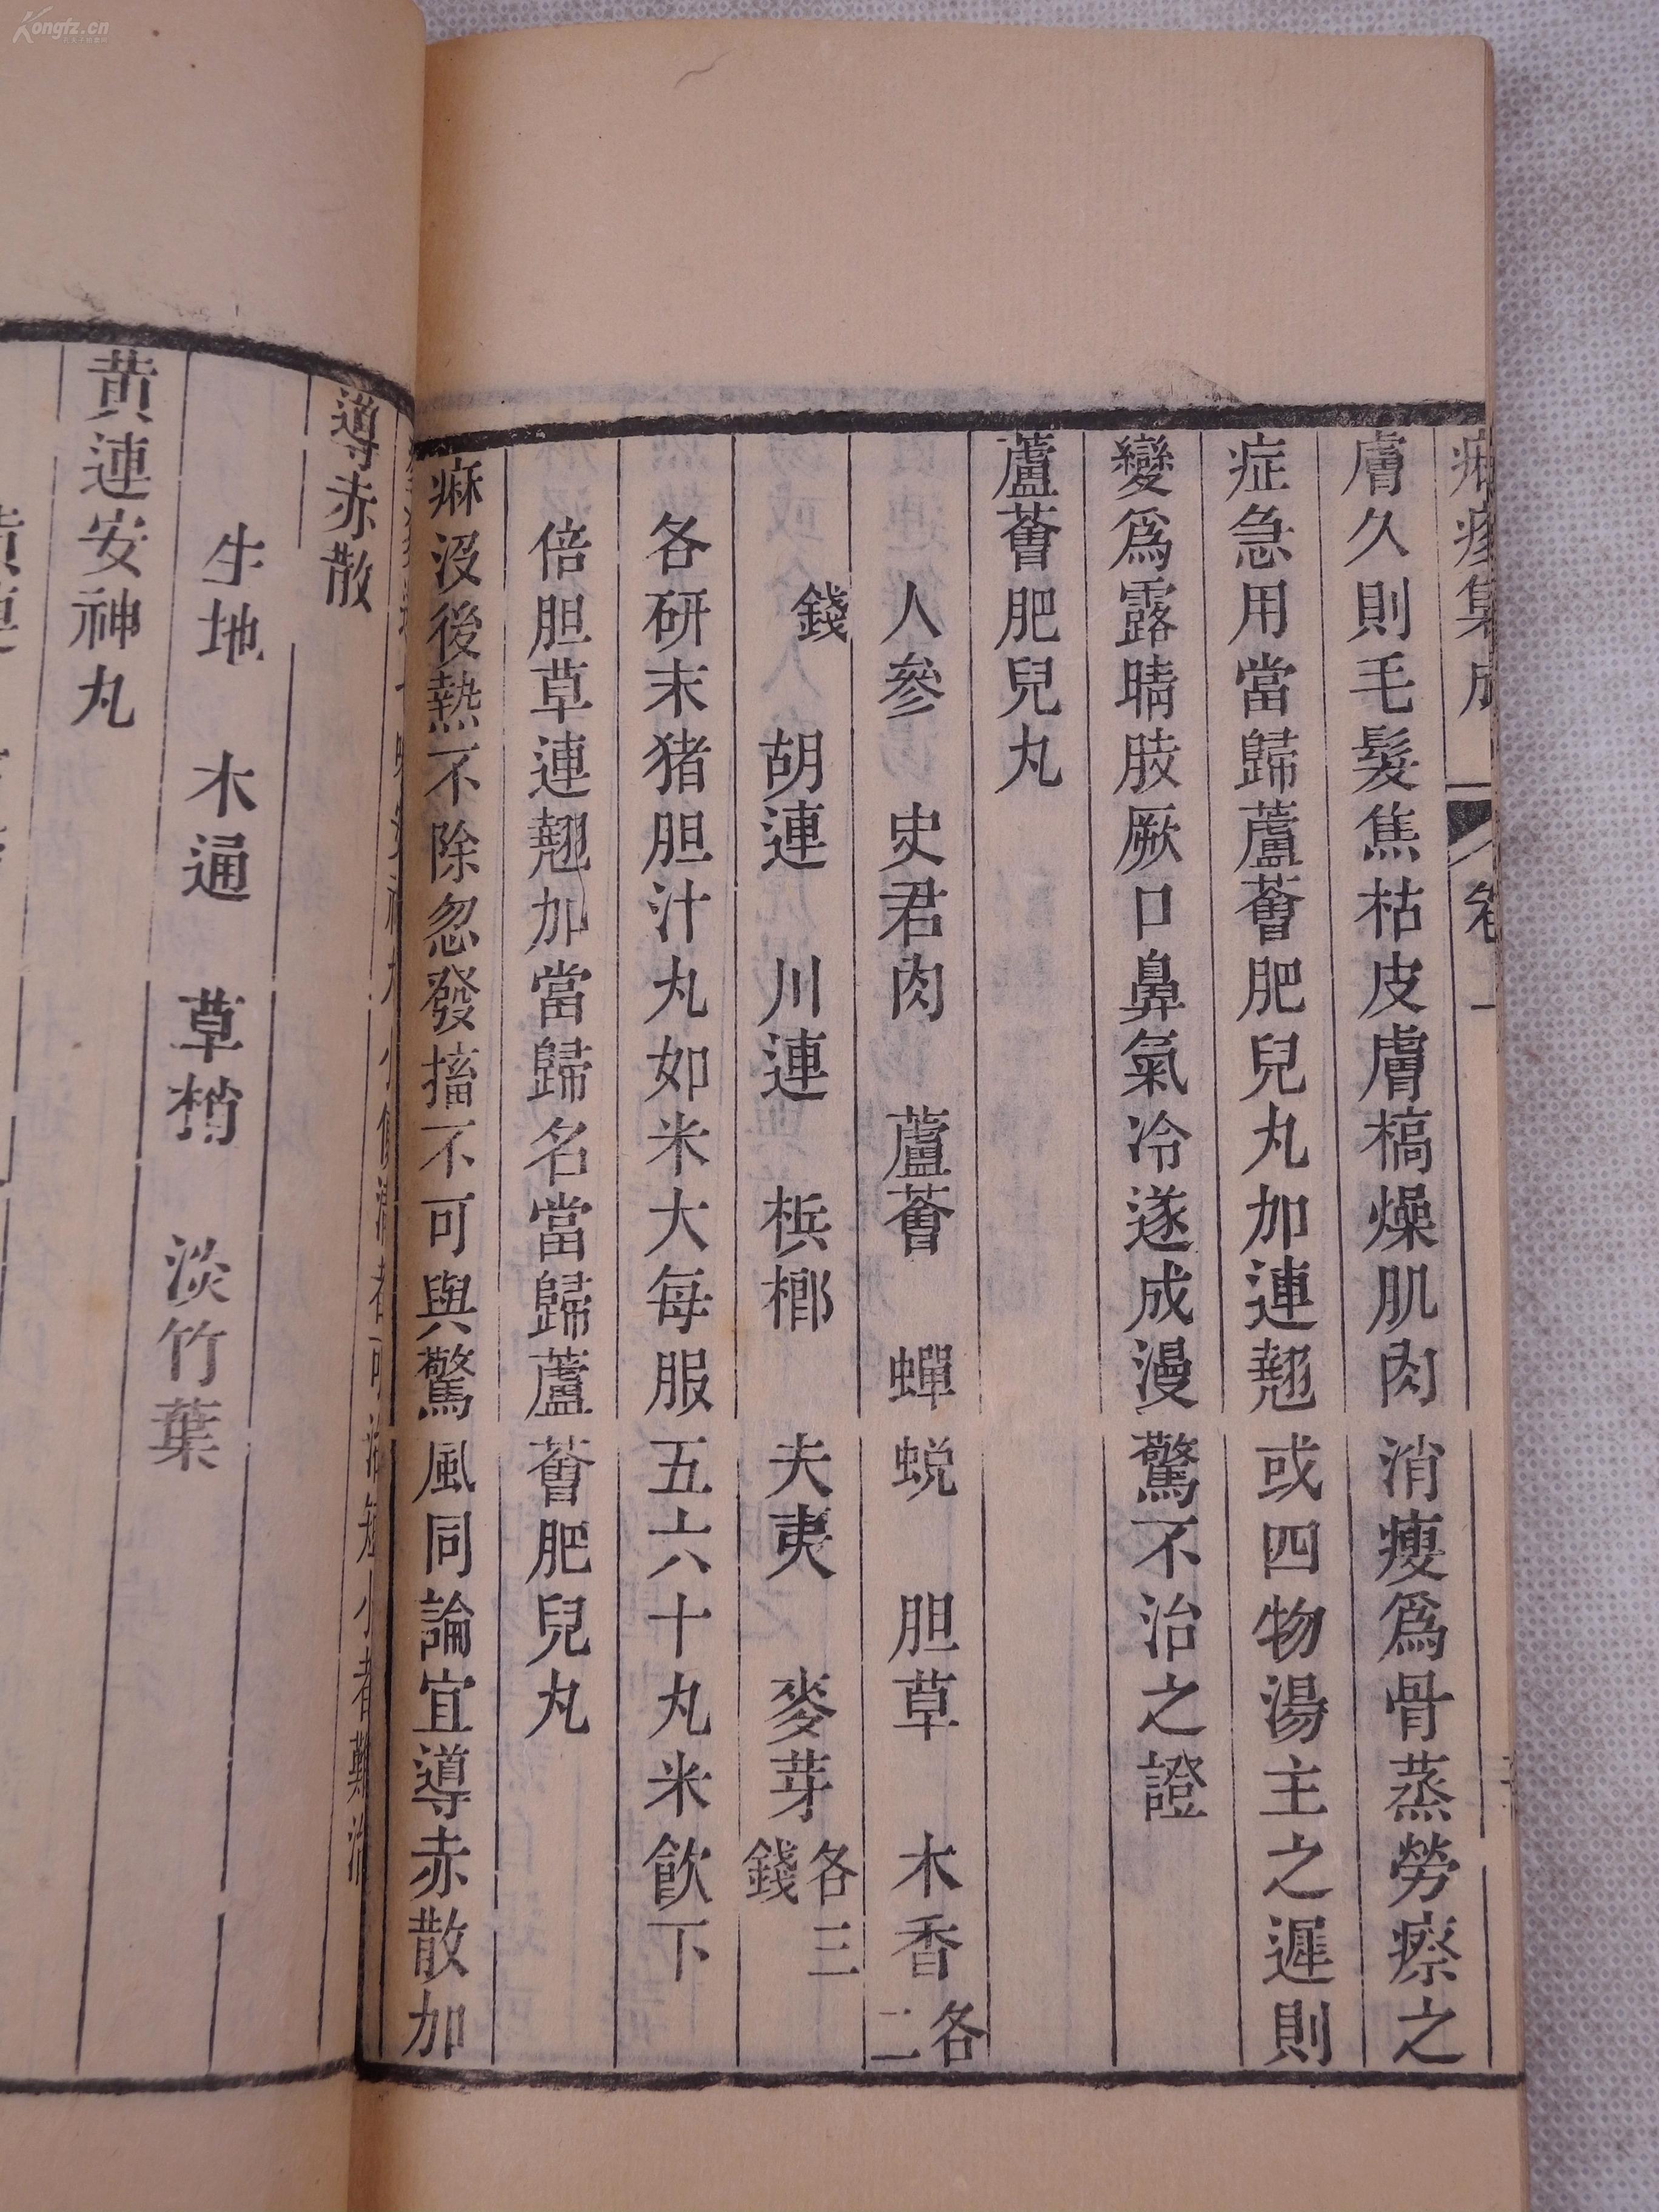 膚久則毛髮焦枯皮膚槁燥肌肉消瘦爲骨蒸勞瘵之
症急用當歸蘆薈肥兒丸加連翹或四物湯主之遲則
變爲露睛肢厥口鼻氣冷遂成漫驚不治之證
蘆薈肥兒丸
人參 史君肉 蘆薈 蟬蛻 胆草 木香各二
錢 胡連 川連 梹榔 夫夷 麥芽各三錢
各研末猪胆汁丸如米大每服五六十丸米飲下
倍胆草連翹加當歸名當歸蘆薈肥兒丸
痳沒後熱不除忽發搐不可與驚風同論宜導赤散加
導赤散
生地 木通 草梢 淡竹葉
黃連安神丸
Kongfz.cn